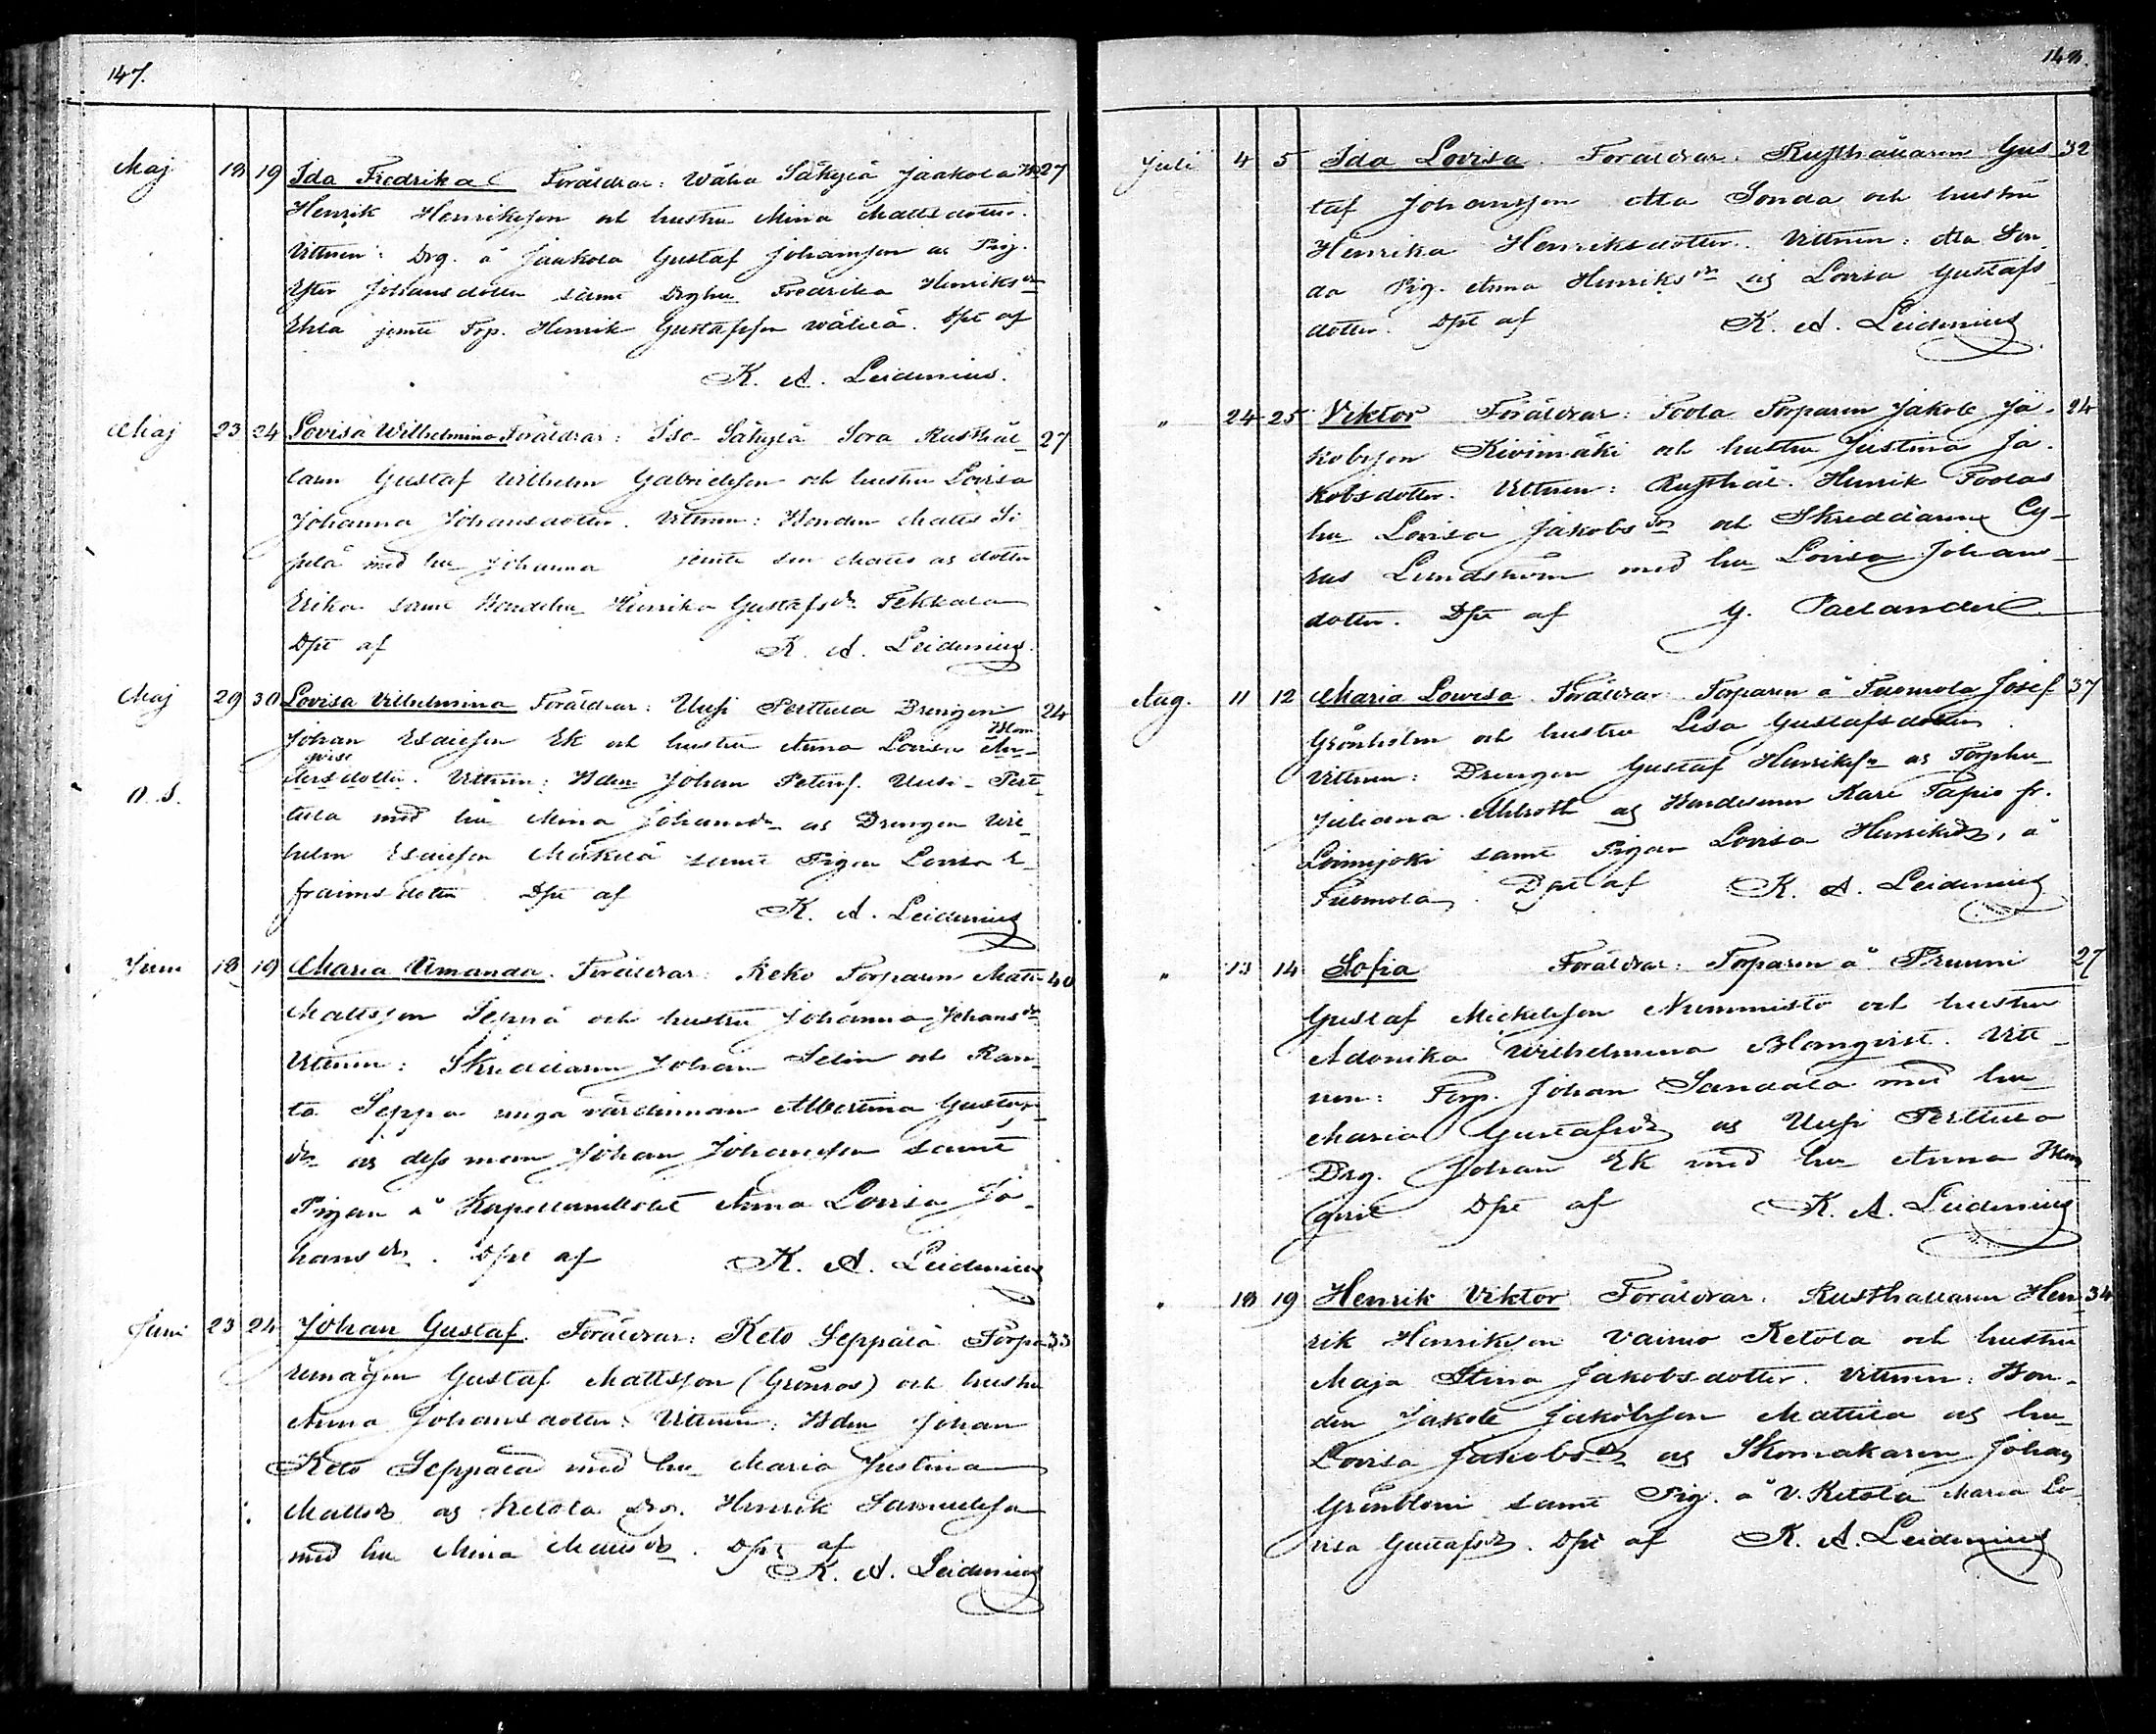 147.
Maj 18 19 Ida Fredrika Föräldrar: Wäha Säkylä Jaakola 27
Henrik Henriksson och hustru Mina Mattsdotter.
Vittnen: Drg. å Jaakola Gustaf Johansson as Pig.
Ester Johansdotter samt Drghu Fredrika Henriksdr
jemte Trp. Henrik Gustafsson Wälilä. Dpt af
K. A. Leidenius.
Maj 23 24 Lovisa Wilhelmina Föräldrar: Iso-Säkylä Sora Rusthål- 27
laren Gustaf Wilhelm Gabrielsson och hustru Lovisa
Johanna Johansdotter. Vittnen: Bonden Matts Si-
pilä med hu Johanna jemte son Matts as dotter
Erika samt Bondehu Henrika Gustafsdr Pekkala
Dpt af K. A. Leidenius.
Maj 29 30 Lovisa Vilhelmina Föräldrar: Uusi Perttula Drengen 24
Blom
Johan Esaiesson Ek och hustru Anna Lovisa An-
qvist
dersdotter. Vittnen: Bden Johan Petersf. Uusi-Pert-
O. S.
tula med hu Mina Johansdr as Drengen Wil-
helm Esaiesson Mäkelä samt Pigan Lovisa E-
fraimsdotter Dpt af
K. A. Leidenius
Juni 18 19 Maria Amanda. Föräldrar: Keko Torparen Matts 40
Mattsson Seppä och hustru Johanna Johansdr
Vittnen: Skreddaren Johan Selin och Ran-
ta Seppä unga värdinnan Albertina Gustafs-
dr as dess man Johan Johansson samt
Pigan å Kapellansbolet Anna Lovisa Jo-
hansdr. Dpt af K. A. Leidenius
Juni 23 24 Johan Gustaf. Föräldrar: Keto Seppälä Torpa- 33
remågen Gustaf Mattsson (Grönros) och hustru
Anna Johansdotter: Vittnen: Bden Johan
Keto Seppälä med hu Maria Justina
Mattsdr as Ketola Drg. Henrik Samuelsson
med hu Mina Mattsdr. Dpt af
K. A. Leidenius
148.
Juli 4 5 Ida Lovisa. Föräldrar. Rusthållaren Gus- 32
taf Johansson Ala Sonda och hustru
Henrika Henriksdotter. Vittnen: Ala Son-
da Pig. Anna Henriksdr as Lovisa Gustafs-
dotter. Dpt af K. A. Leidenius
" 24 25 Viktor Föräldrar: Toola Torparen Jakob Ja- 24
kobsson Kivimäki och hustru Justina Ja-
kobsdotter. Vittnen: Rusthål. Henrik Toolas
hu Lovisa Jakobsdr och Skreddaren Cy-
rus Lundström med hu Lovisa Johans-
dotter. Dpt af G. Paelander
Aug. 11 12 Maria Lowisa. Föräldrar Torparen å Tuomola Josef 37
Grönholm och hustru Lisa Gustafsdotter.
Vittnen: Drengen Gustaf Henriksson as Torphu
Juliana Ahlroth as Bondesonen Karl Tapio fr.
Loimijoki samt Pigan Lovisa Henriksdr, å
Tuomola. Dpt af K. A. Leidenius
" 13 14 Sofia Föräldrar: Torparen å Prunni 27
Gustaf Mickelsson Nummisto och hustru
Adonika Wilhelmina Blomqvist. Vitt-
nen: Torp. Johan Sandala med hu
Maria Gustafsdr as Uusi Perttula
Drg. Johan Ek med hu Anna Blom-
qvist Dpt af K. A. Leidenius
" 18 19 Henrik Viktor Föräldrar. Rusthållaren Hen- 34
rik Henriksson Vainio Ketola och hustru
Maja Stina Jakobsdotter. Vittnen: Bon-
den Jakob Jakobsson Mattila as hu
Lovisa Jakobsdr as Skomakaren Johan
Grönblom samt Pig. å V. Ketola Maria Lo-
visa Gustafsdr. Dpt af K. A. Leidenius